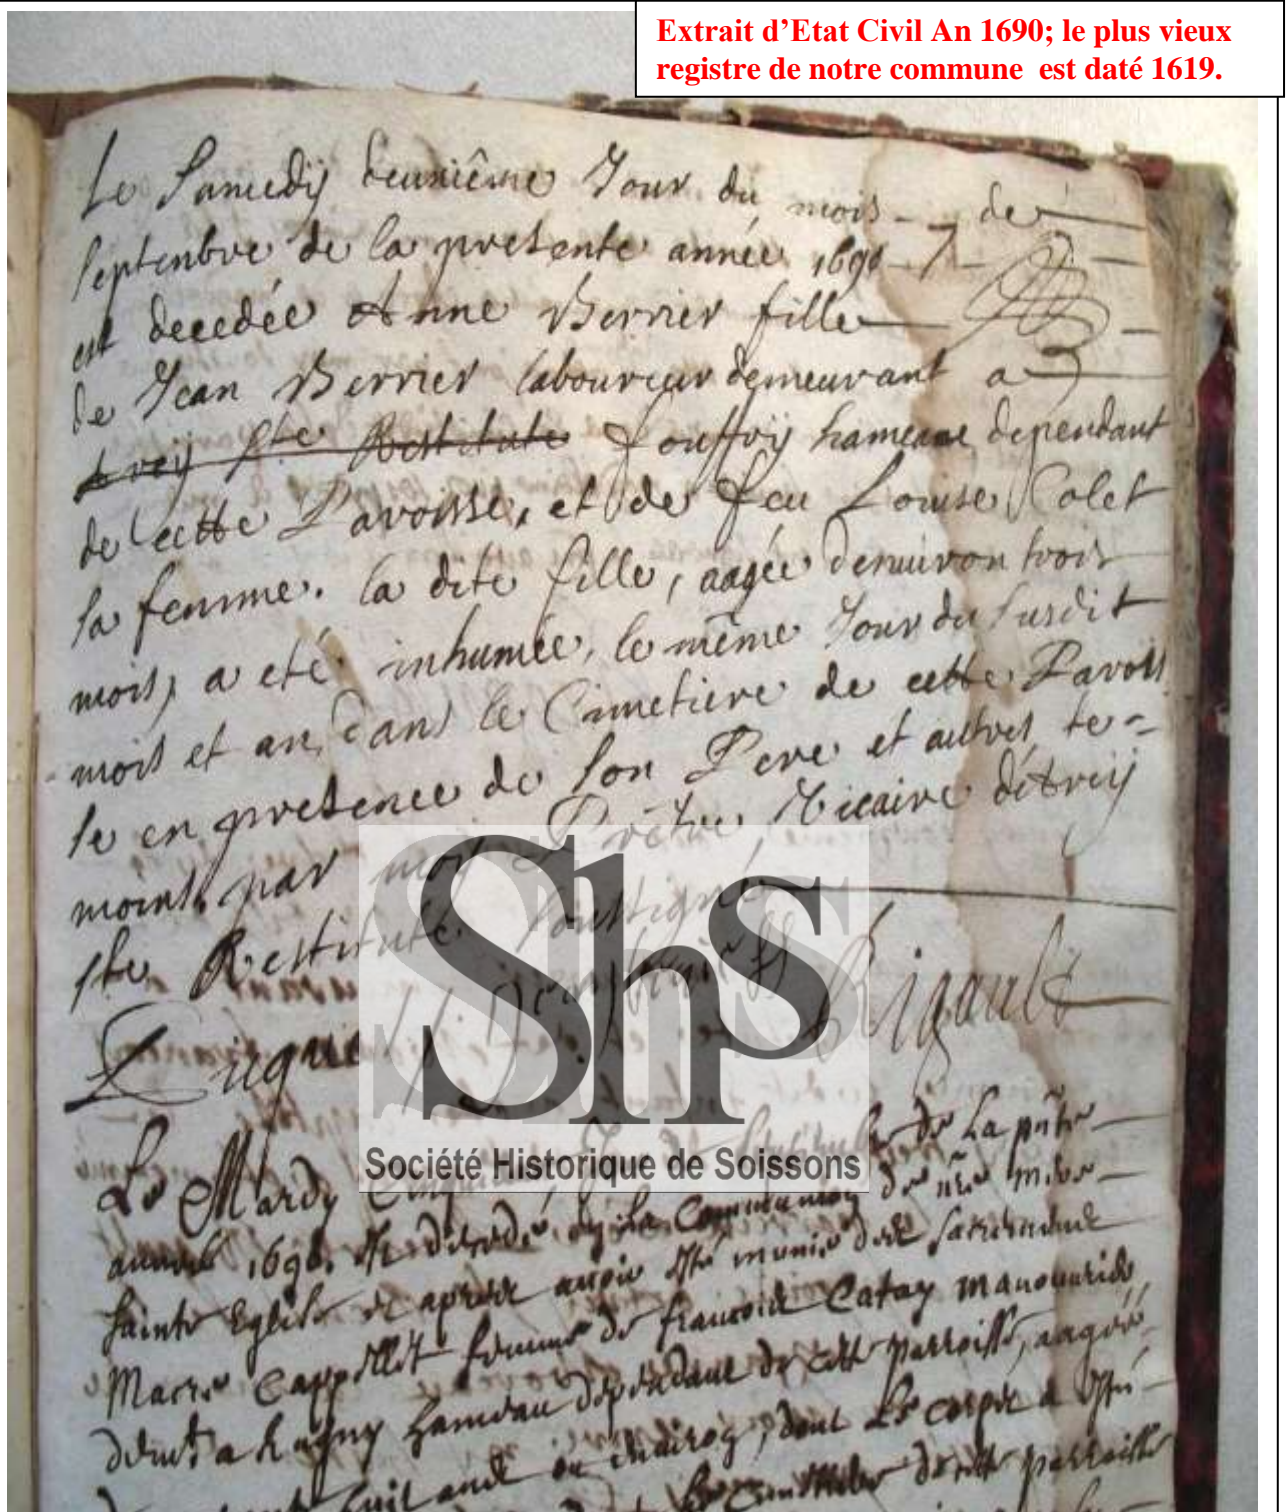 Extrait d'Etat Civil An 1690; le plus vieux
registre de notre commune est daté 1619.
Le Samedÿ deuxiême Jour du mois de
Septenbre de la presente année 1690
est decedée Anne Berrier fille
de Jean Berrier laboureur demeurant a
Arcÿ Ste Restitute Jouffrÿ hameau dependant
de cette Paroisse, et de feu Louise Colet
sa femme. la dite fille, aagée denuiron trois
mois, a eté inhumée, le même Jour du susdit
mois et an, dans le Cimetiere de cette Parois
se en presence de son Pere et autres te-
moins par moÿ Prêtre Vicaire d'Arcÿ
Ste Restitute soussigné
Luque Rigault
Société Historique de Soissons
Shs
Le Mardy de La pnte
annee 1690. est decedé en la Communion de nre mere
Sainte Eglise et apres auoir esté munie des sacremens
Macre Cappillet femme de francois Catay manouurier
demt a Rugny hameau dependant de cette parroisse, aagée
huit ans ou enuiron, dont Le corps a esté
Le Cimetiere de cette parroisse